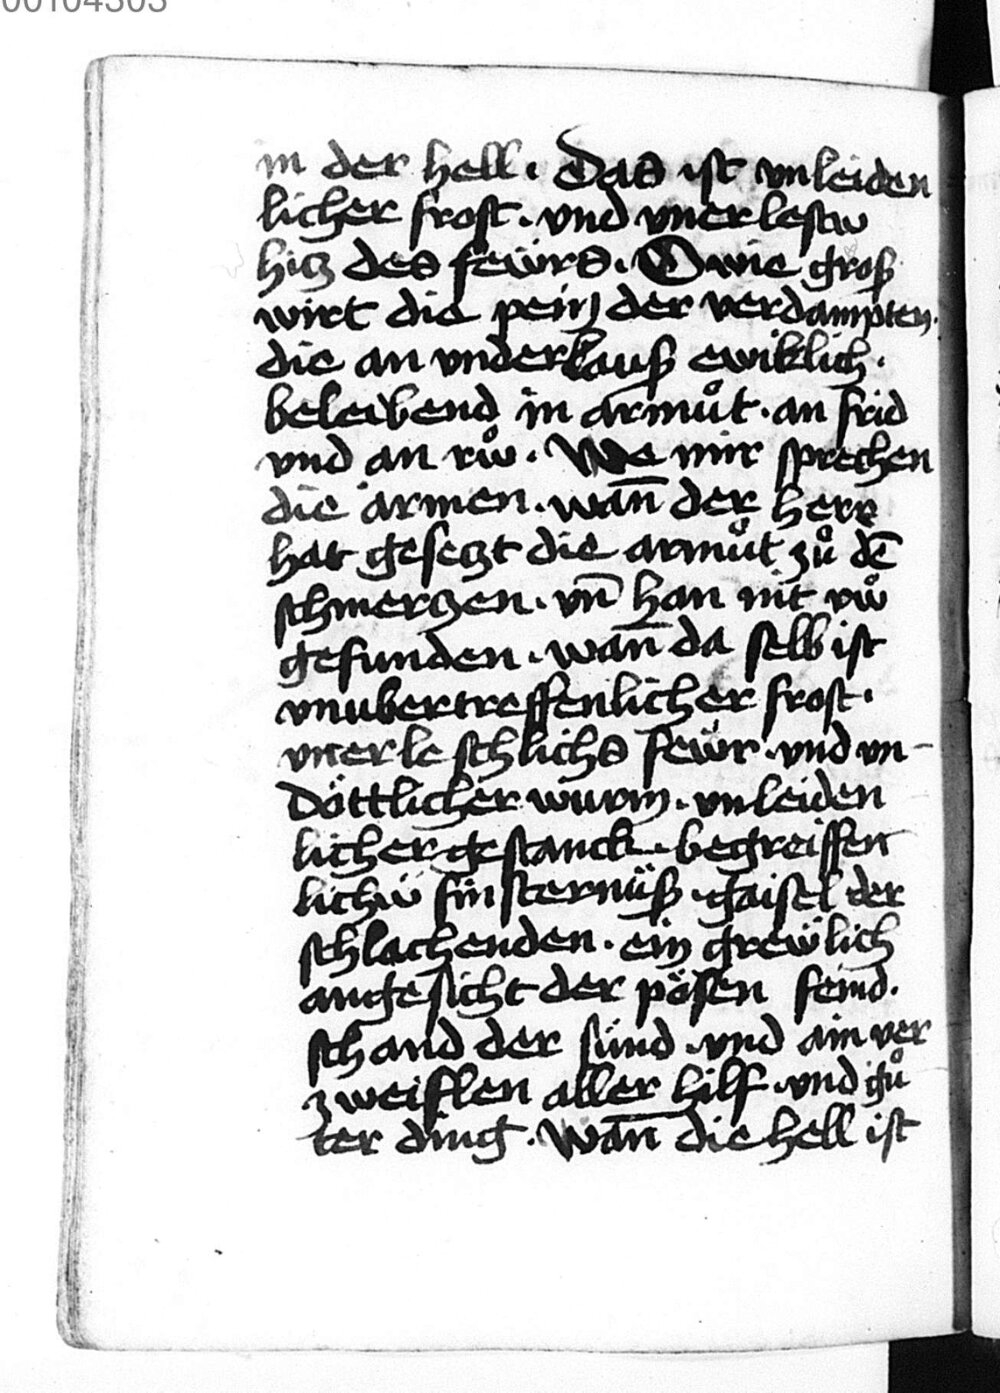 00104303
in der hell. Das ist vnleiden
licher frost. vnd vnerlestw
hitz des fewrs. O wie gros
wirt die pein der verdampten.
die an vnderlauß ewiklich.
beleibend in armůt. an frid
vnd an růw. We mir sprechen
die armen. wañ der herr
hat gesetzt die armůt zů dē
schmertzen. vñ han nit růw
gefunden. wañ da selb ist
vnubertreffenlicher frost.
vnerleschlichs fewr. vnd vn-
döttlicher wurm. vnleiden
licher gestanck. begreiffen
lichü finsternüß. gaisel der
schlachenden. ein grewlich
angesicht der pösen feind.
schand der sünd. vnd ain ver
zweiflen aller hilf. vnd gů
ter ding. wañ die hell ist